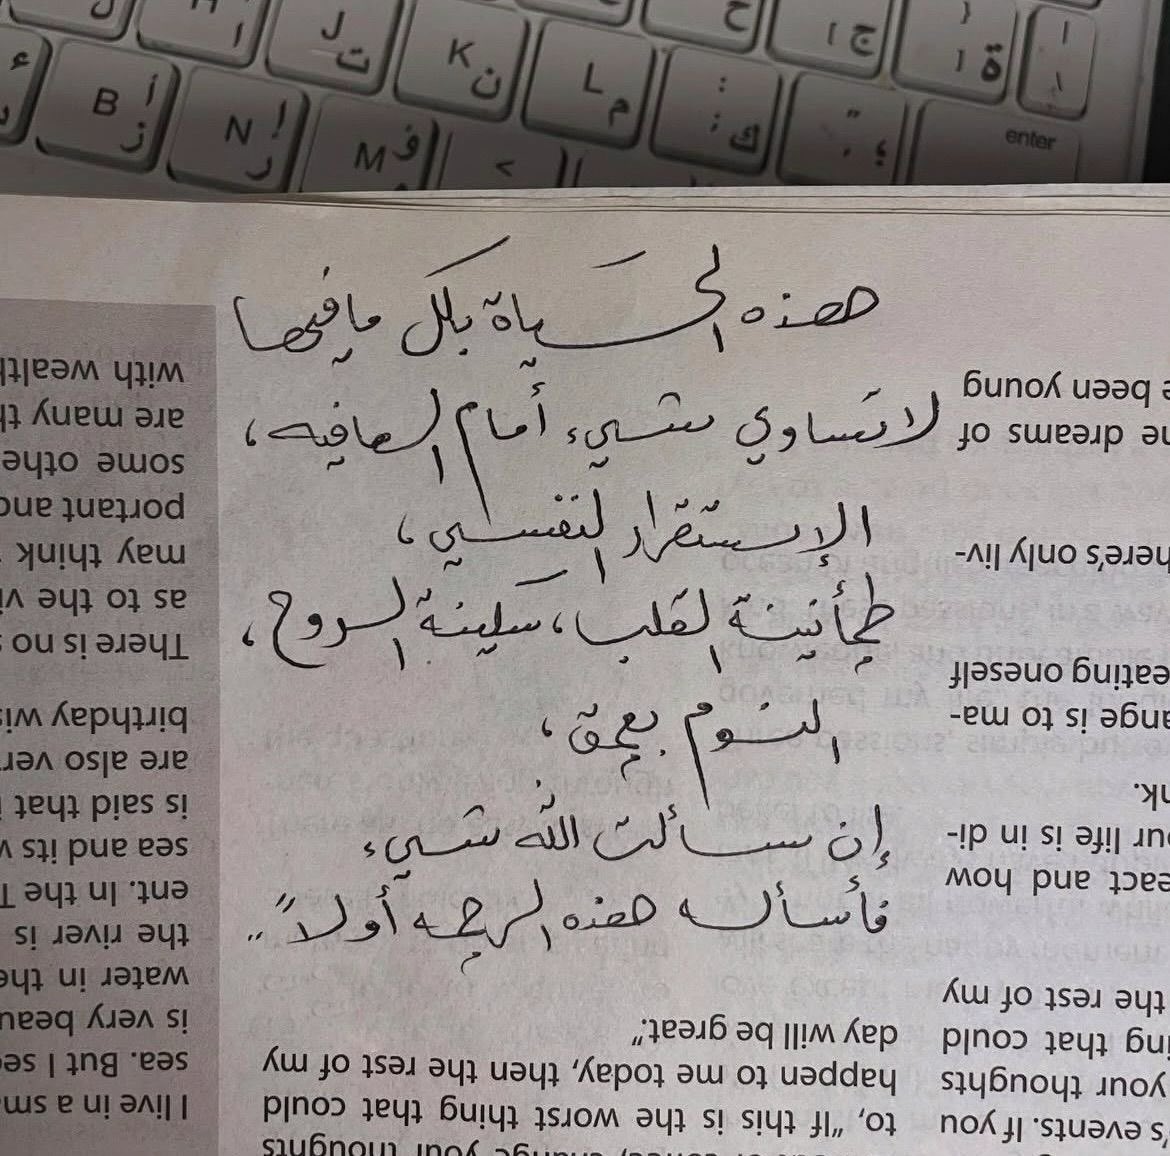 هذه الحياة بكل مافيها
لاتساوي شيء أمام العافيه،
الإستقرار النفسي،
طمأنينة القلب، سكينة الروح،
النوم بعمق،
إن سألت الله شيء
فأسأله هذه الرحمه أولاً"
e been young
he dreams of
here's only liv-
eating oneself
ange is to ma-
nk.
our life is in di-
eact and how
the rest of my
ing that could
your thoughts
's events. If you
day will be great."
happen to me today, then the rest of my
to, "If this is the worst thing that could
your thoughts
with wealth
are many th
some othe
portant and
may think
as to the vi
There is no s
birthday wis
are also ver
is said that
sea and its v
ent. In the T
the river is
water in the
is very beau
sea. But I se
I live in a sma
B أ ز
N إ ر
M ف
K ن
L م
J ت
: ; ك
enter